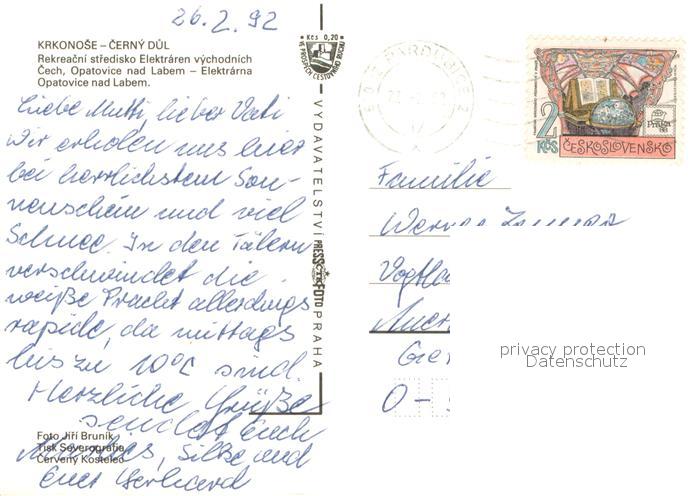 26.2.92
KRKONOŠE – ČERNÝ DŮL
Rekreační středisko Elektráren východních
Čech, Opatovice nad Labem – Elektrárna
Opatovice nad Labem.
Kčs 0,20
VE PROSPĚCH CESTOVNÍHO RUCHU
Liebe Mutti, lieber Vati
Wir erholen uns hier
bei herrlichstem Son-
nenschein und viel
Schnee. In den Tälern
verschwindet die
weiße Pracht allerdings
rapide, da mittags
bis zu 10°C sind.
Herzliche Grüße
senden Euch
Silke und
Euer Gerhard
Foto Jiří Bruník
Tisk Severografia
Červený Kostelec
VYDAVATELSTVÍ PRESSFOTO PRAHA
PARDUBICE 2
2 Kčs
Praha 88
ČESKOSLOVENSKO
Familie
Werner
O-
privacy protection
Datenschutz